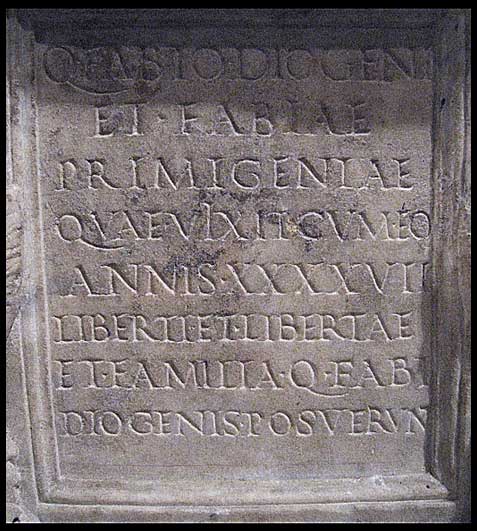 Q·FABIO·DIOGENI
ET·FABIAE
PRIMIGENIAE
QVAE·VIXIT·CVM·EO
ANNIS·XXXXVII
LIBERTI·ET·LIBERTAE
ET·FAMILIA·Q·FABI
DIOGENIS·POSVERVN